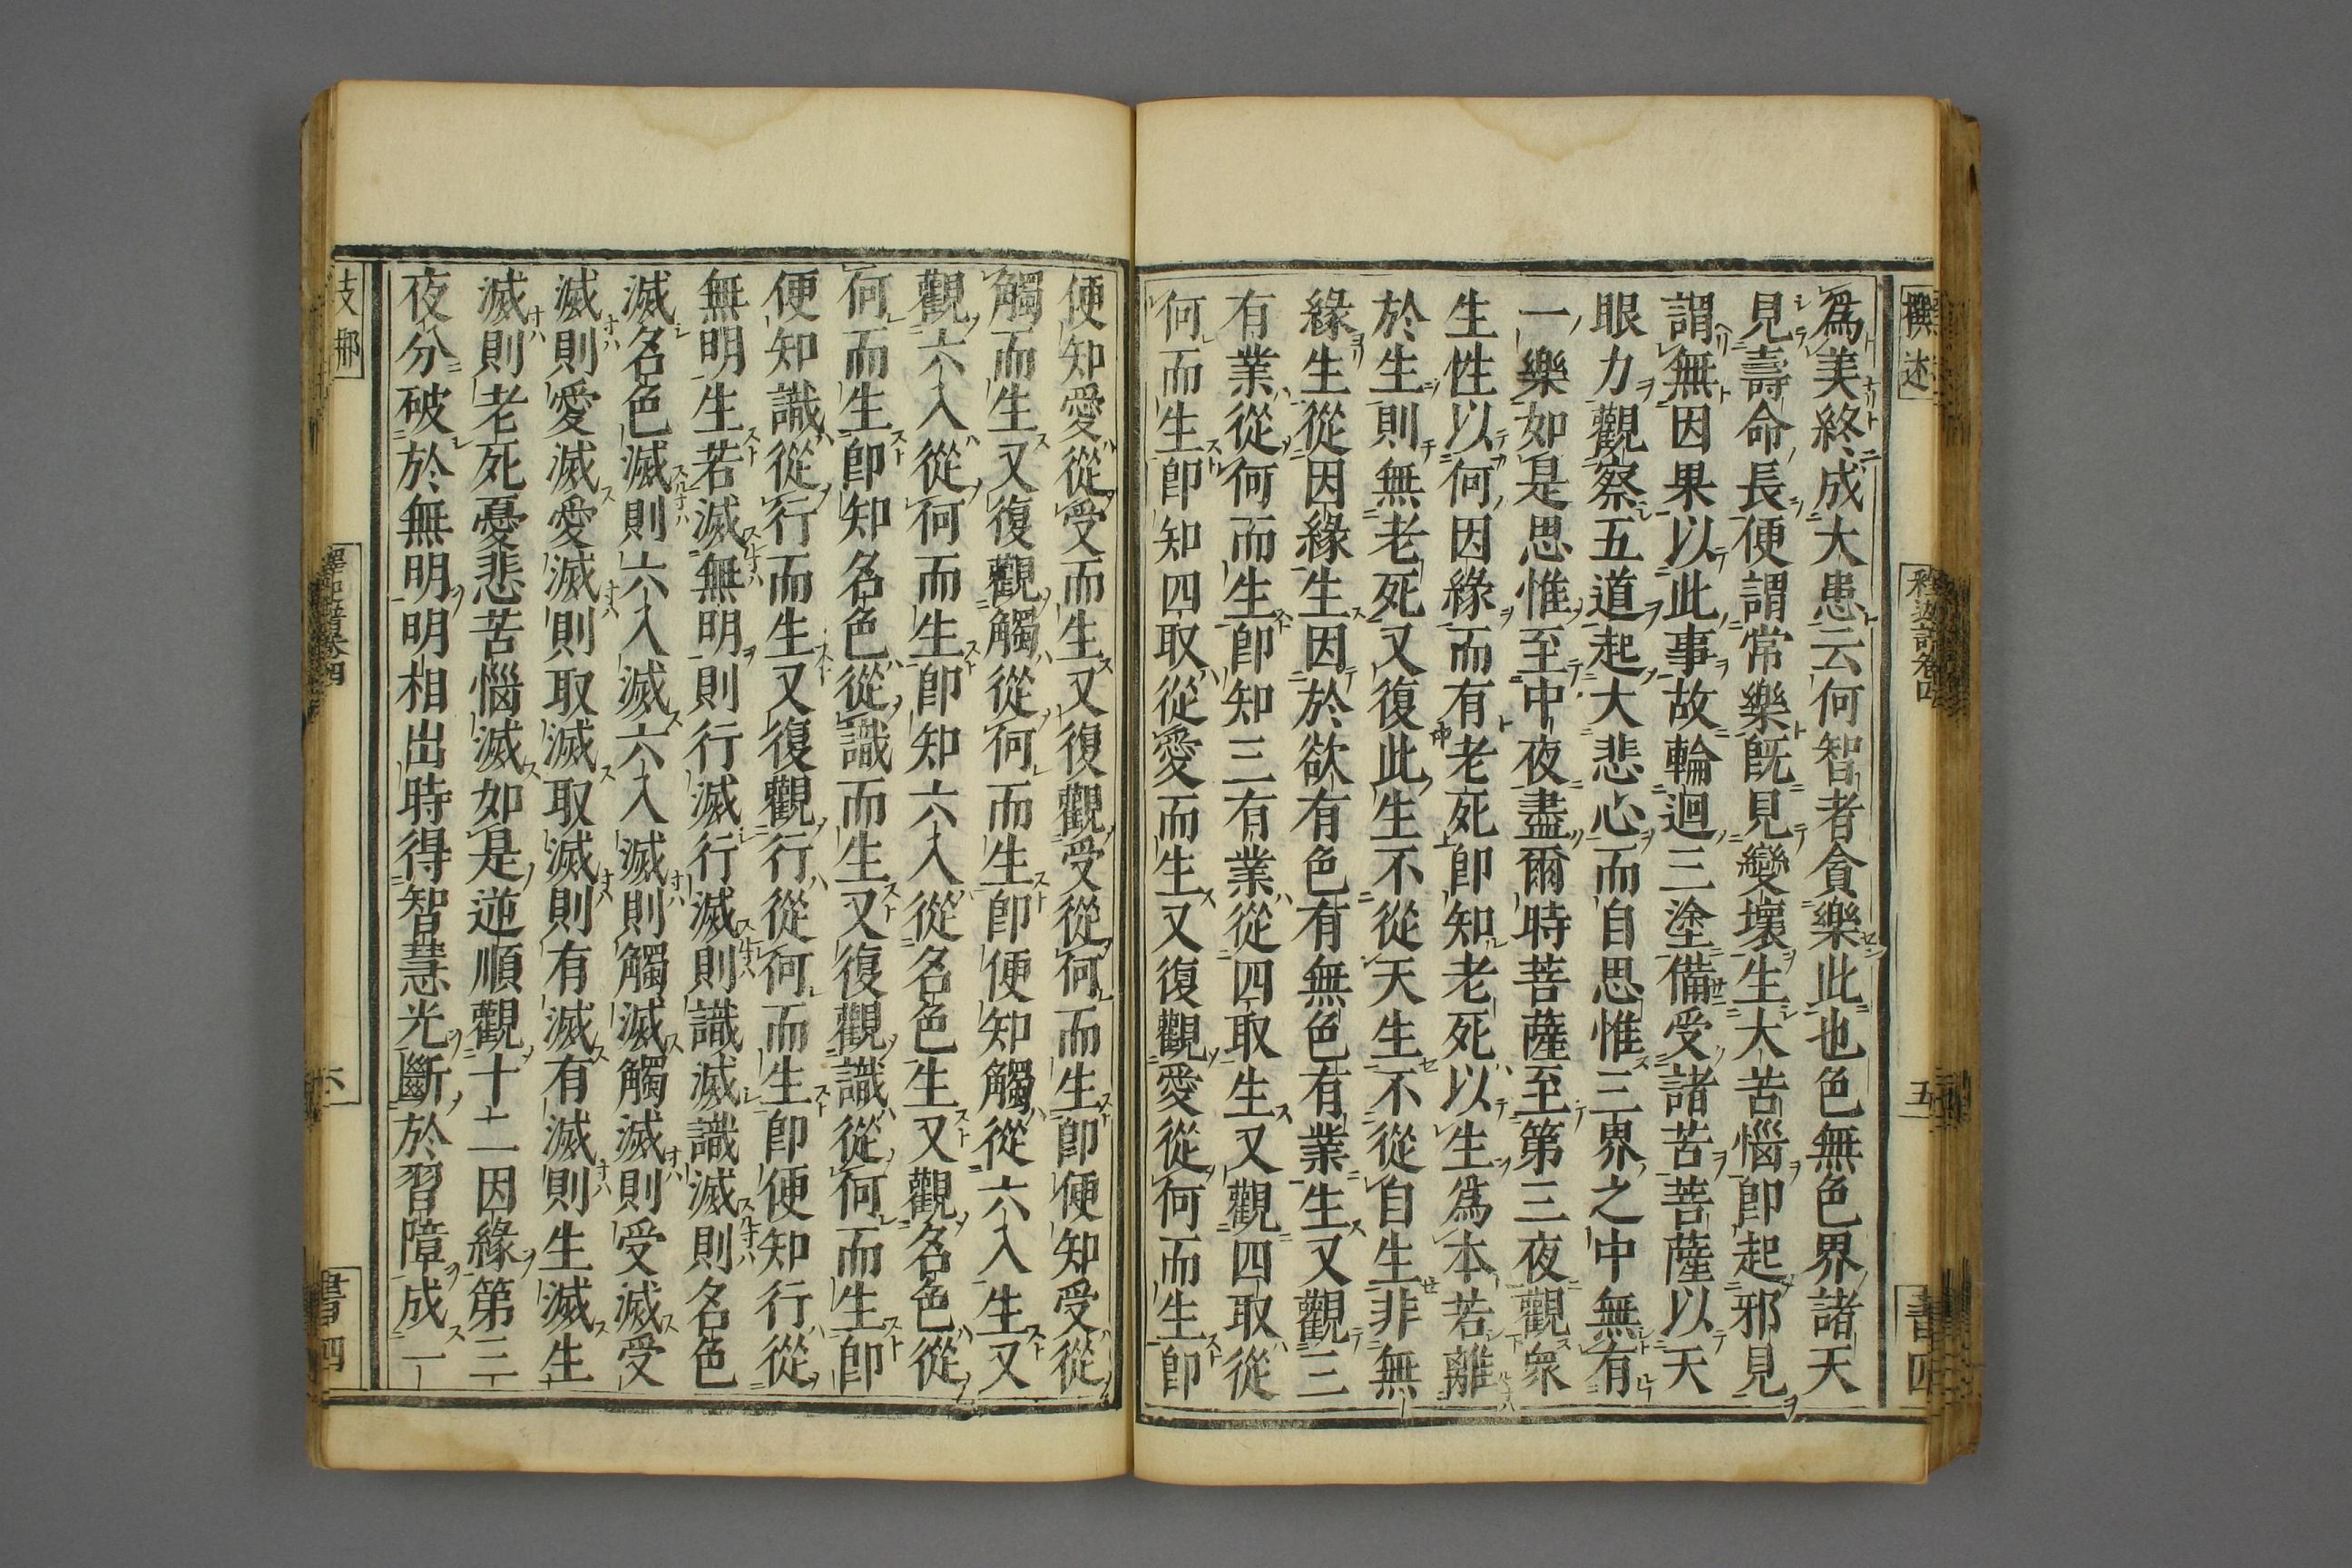 撰述
釈迦譜卷四
五
書四
為美終成大患云何智者貪樂此也色無色界諸天
見壽命長便謂常樂既見變壞生大苦惱即起邪見
謂無因果以此事故輪迴三塗備受諸苦菩薩以天
眼力觀察五道起大悲心而自思惟三界之中無有
一樂如是思惟至中夜盡爾時菩薩至第三夜觀衆
生性以何因緣而有老死即知老死以生為本若離
於生則無老死又復此生不從天生不從自生非無
緣生從因緣生因於欲有色有無色有業生又觀三
有業從何而生即知三有業從四取生又觀四取從
何而生即知四取從愛而生又復觀愛從何而生即
便知愛從受而生又復觀受從何而生即便知受從
觸而生又復觀觸從何而生即便知觸從六入生又
觀六入從何而生即知六入從名色生又觀名色從
何而生即知名色從識而生又復觀識從何而生即
便知識從行而生又復觀行從何而生即便知行從
無明生若滅無明則行滅行滅則識滅識滅則名色
滅名色滅則六入滅六入滅則觸滅觸滅則受滅受
滅則愛滅愛滅則取滅取滅則有滅有滅則生滅生
滅則老死憂悲苦惱滅如是逆順觀十二因緣第三
夜分破於無明明相出時得智慧光斷於習障成一
支那
釋迦譜卷四
六
書四